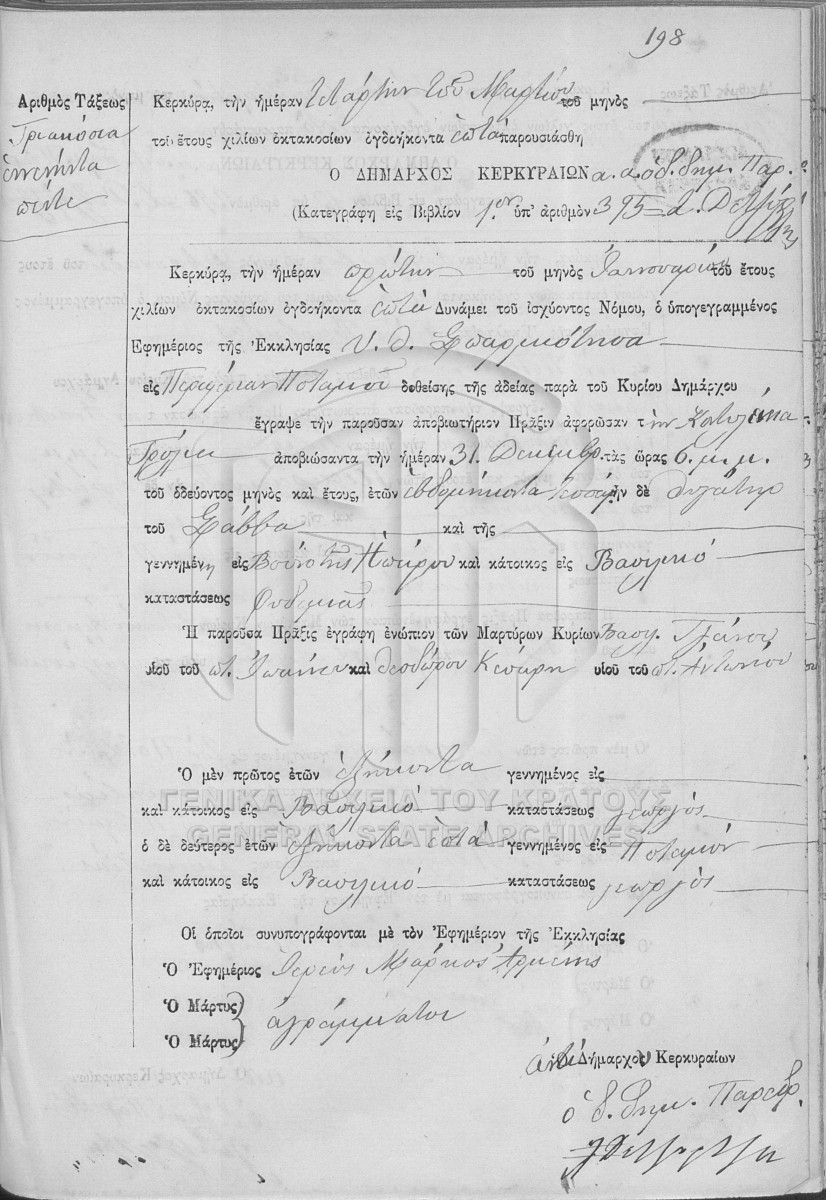 198
Ἀριθμὸς Τάξεως
Τριακόσια
ἐννενήντα
πέντε
Κερκύρα, τὴν ἡμέραν τετάρτην τοῦ Μαρτίου τοῦ μηνὸς
τοῦ ἔτους χιλίων ὀκτακοσίων ὀγδοήκοντα ἑπτὰ παρουσιάσθη
Ὁ ΔΗΜΑΡΧΟΣ ΚΕΡΚΥΡΑΙΩΝ α. α. ὁ δ. δημ. Παρ.
(Κατεγράφη εἰς Βιβλίον 1ον ὑπ' ἀριθμὸν 395
Κερκύρα, τὴν ἡμέραν πρώτην τοῦ μηνὸς Ἰαννουαρίου τοῦ ἔτους
χιλίων ὀκτακοσίων ὀγδοήκοντα ἑπτὰ Δυνάμει τοῦ ἰσχύοντος Νόμου, ὁ ὑπογεγραμμένος
Ἐφημέριος τῆς Ἐκκλησίας Υ. Θ. Σπηλιώτησα
εἰς Περιφέρειαν Ποταμοῦ δοθείσης τῆς ἀδείας παρὰ τοῦ Κυρίου Δημάρχου
ἔγραψε τὴν παροῦσαν ἀποβιωτήριον Πρᾶξιν ἀφορῶσαν τὴν
ἀποβιώσαντα τὴν ἡμέραν 31. Δεκεμβρ. τὰς ὥρας 6. μ. μ.
τοῦ ὁδεύοντος μηνὸς καὶ ἔτους, ἐτῶν ἑβδομήκοντα τεσσάρ ἦν δὲ θυγάτηρ
τοῦ Σάββα καὶ τῆς
γεννημένη εἰς τῆς Ἠπείρου καὶ κάτοικος εἰς Βασιλικὸ
καταστάσεως οὐδεμιᾶς
Ἡ παροῦσα Πρᾶξις ἐγράφη ἐνώπιον τῶν Μαρτύρων Κυρίων Βασιλ.
υἱοῦ τοῦ ποτ. Ἰωάννου καὶ Θεοδώρου Κεπάρη υἱοῦ τοῦ ποτ. Ἀντωνίου
Ὁ μὲν πρῶτος ἐτῶν ἑξήκοντα γεννημένος εἰς
καὶ κάτοικος εἰς Βασιλικὸ καταστάσεως γεωργὸς
ὁ δὲ δεύτερος ἐτῶν ἑξήκοντα ἑπτὰ γεννημένος εἰς Ποταμὸν
καὶ κάτοικος εἰς Βασιλικὸ καταστάσεως γεωργὸς
Οἱ ὁποῖοι συνυπογράφονται μὲ τὸν Ἐφημέριον τῆς Ἐκκλησίας
Ὁ Ἐφημέριος Ἱερεὺς Μάρκος
Ὁ Μάρτυς
Ὁ Μάρτυς
ἀγράμματοι
ἀντὶ Δήμαρχος Κερκυραίων
ὁ δ. δημ. Παρεδρ.
ΓΕΝΙΚΑ ΑΡΧΕΙΑ ΤΟΥ ΚΡΑΤΟΥΣ
GENERAL STATE ARCHIVES